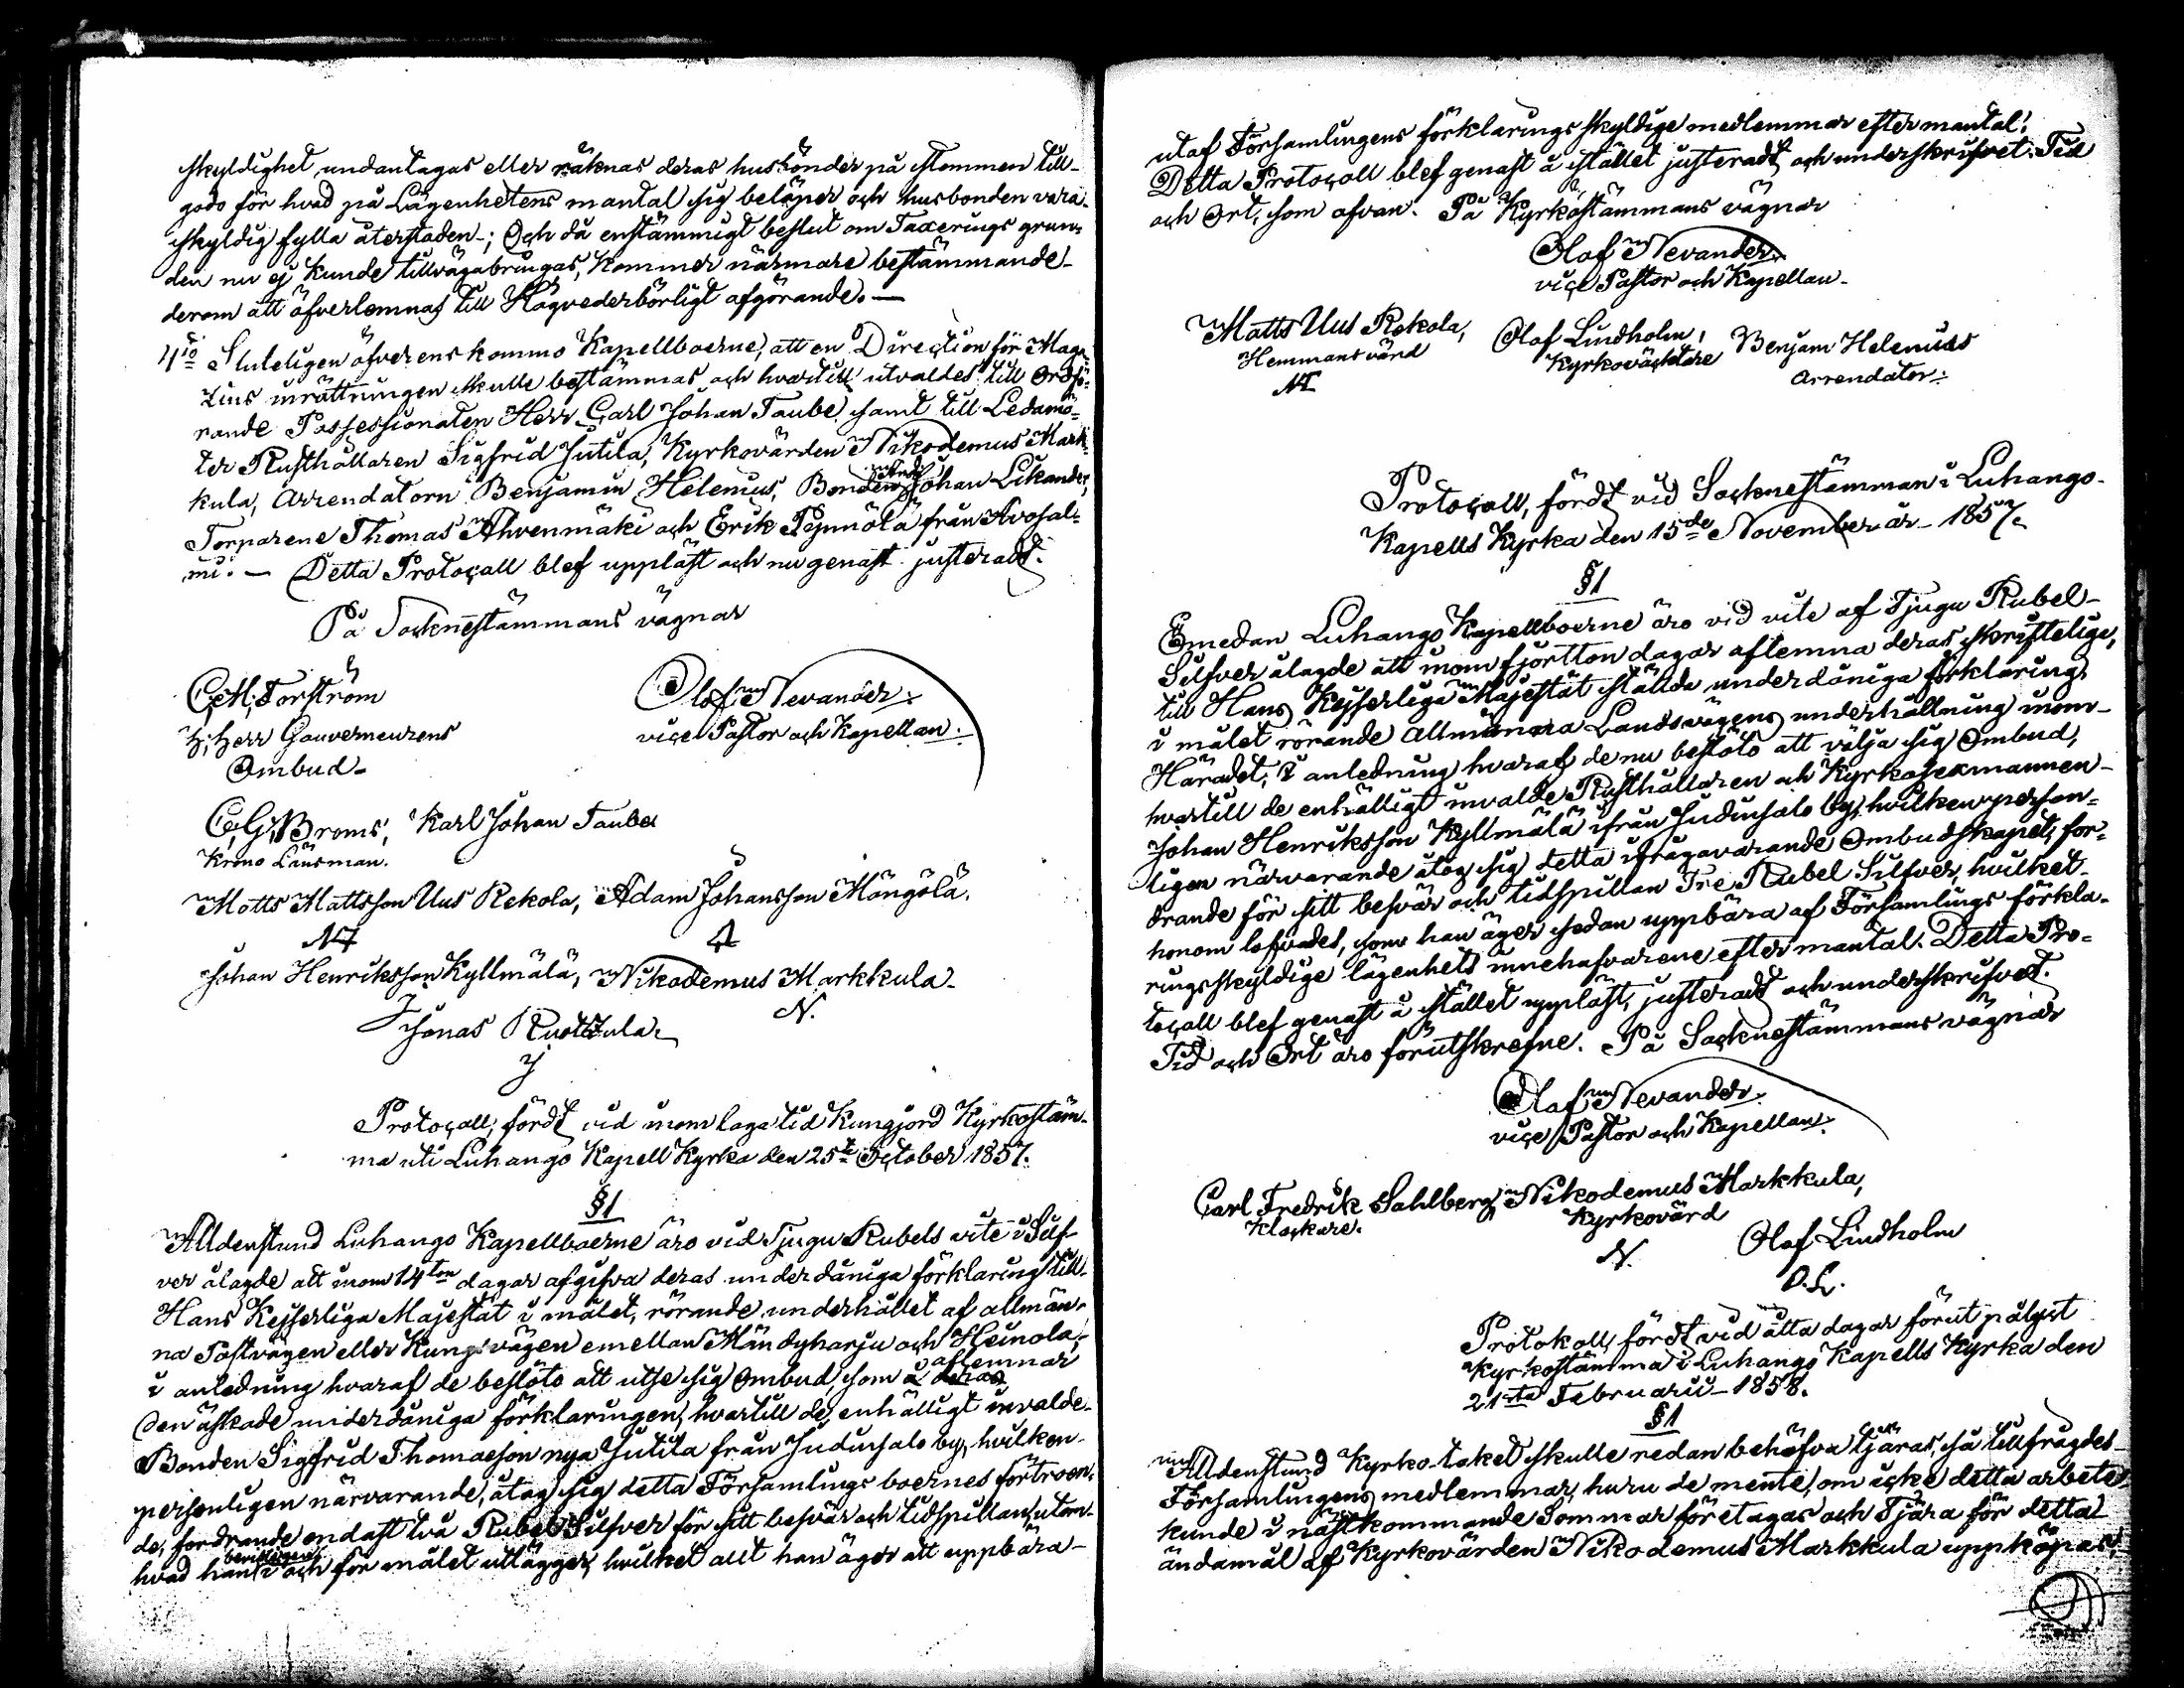 skyldighet, undantagas eller räknas deras husbönder på stommen till-
godo för hvad på Lägenhetens mantal sig belöper och husbonden vara
skyldig fylla återstoden; Och då enstämmigt beslut om Taxerings grun-
den nu ej kunde tillvägabringas, kommer närmare bestämmande
derom att öfverlemnas till Högvederbörligt afgörande. —
4to Sluteligen öfverenskommo Kapellboerne, att en Direction för Maga-
zins inrättningen skulle bestämmas och hvartill utvaldes till Ordfö-
rande Possessionaten Herr Carl Johan Taube samt till Ledamö-
ter Rusthållaren Sigfrid Jutila, Kyrkovärden Nikodemus Mark-
kula, Arrendatorn Benjamin Helenius, Bonden Johan Likander,
Torparene Thomas Ahvenmäki och Erik Pynnölä från Avosal-
mi. — Detta Protocoll blef uppläst och nu genast justeradt.
På Socknestämmans vägnar
C. M. Forström
H. Herr Gouverneurens
Ombud
Olof Nevander
vice Pastor och Kapellan.
C. G. Broms, Karl Johan Taube
Krono Länsman.
Matts Mattsson Uus Rekola, Adam Johansson Mängölä.
Johan Henriksson Kyllmälä, Nikodemus Markkula
J N.
Jonas Ruottula
J
Protocoll, fördt vid inom laga tid Kungjord Kyrkostäm-
ma uti Luhango Kapell Kyrka den 25te October 1857.
§1
Alldenstund Luhango Kapellboerne äro vid Tjugu Rubels vite i Silf-
ver ålagde att inom 14ton dagar afgifva deras underdåniga förklaring till
Hans Kejserliga Majestät i målet, rörande underhållet af allmän-
na Postvägen eller Kungsvägen emellan Mändyharju och Heinola,
i anledning hvaraf de beslöto att utse sig Ombud, som å deras aflemnar
den äskade underdåniga förklaringen, hvartill de enhälligt invalde
Bonden Sigfrid Thomasson nya Jutila från Judinsalo by, hvilken
personligen närvarande, åtog sig detta Församlings boernes förtroen-
de, fordrande endast två Rubel Silfver för sitt besvär och tidspillan, utom
hvad han i och för målet utlägger, hvilket allt han äger att uppbära
utaf Församlingens förklaringsskyldige medlemmar efter mantal.
Detta Protocoll blef genast å stället justeradt och underskrifvet. Tid
och Ort, som ofvan. På Kyrkostämmans vägnar
Olof Nevander
vice Pastor och Kapellan
Matts Uus Rekola, Olof Lindholm, Benjam Helenius
Hemmansvärd Kyrkoväcktare Arrendator.
Protocoll, fördt vid Socknestämman i Luhango
Kapells Kyrka den 15de November år 1857.
§1
Emedan Luhango Kapellboerne äro vid vite af Tjugu Rubel
Silfver ålagde att inom fjortton dagar aflemna deras skriftelige,
till Hans Kejserliga Majestät ställda underdåniga förklaring
i målet rörande Allmänna Landsvägens underhållning inom
Häradet, i anledning hvaraf de nu beslöto att välja sig Ombud,
hvartill de enhälligt invalde Rusthållaren och Kyrkosexmannen
Johan Henriksson Kyllmälä ifrån Judinsalo by, hvilken person-
ligen närvarande åtog sig detta ifrågavarande Ombudskapet, for-
drande för sitt besvär och tidspillan Tre Rubel Silfver, hvilket
honom lofvades, som han äger sedan uppbära af Församlings förkla-
ringsskyldige lägenhets innehafvarene efter mantal. Detta Pro-
tocoll blef genast å stället uppläst, justeradt och underskrifvet.
Tid och Ort äro förutskrefne. På Socknestämmans vägnar
Olof Nevander
vice Pastor och Kapellan.
Carl Fredrik Sahlberg, Nikodemus Markkula,
Klockare. Kyrkovärd
N. Olof Lindholm
O.L.
Protokoll, fördt vid åtta dagar förut pålyst
Kyrkostämma i Luhango Kapells Kyrka den
21sta Februarii 1858.
§1
Alldenstund Kyrko-taket skulle redan behöfva tjäras, så tillfrågdes
Församlingens medlemmar, huru de mente, om icke detta arbete
kunde i nästkommande Sommar företagas och Tjära för detta
ändamål af Kyrkovärden Nikodemus Markkula uppköpas,